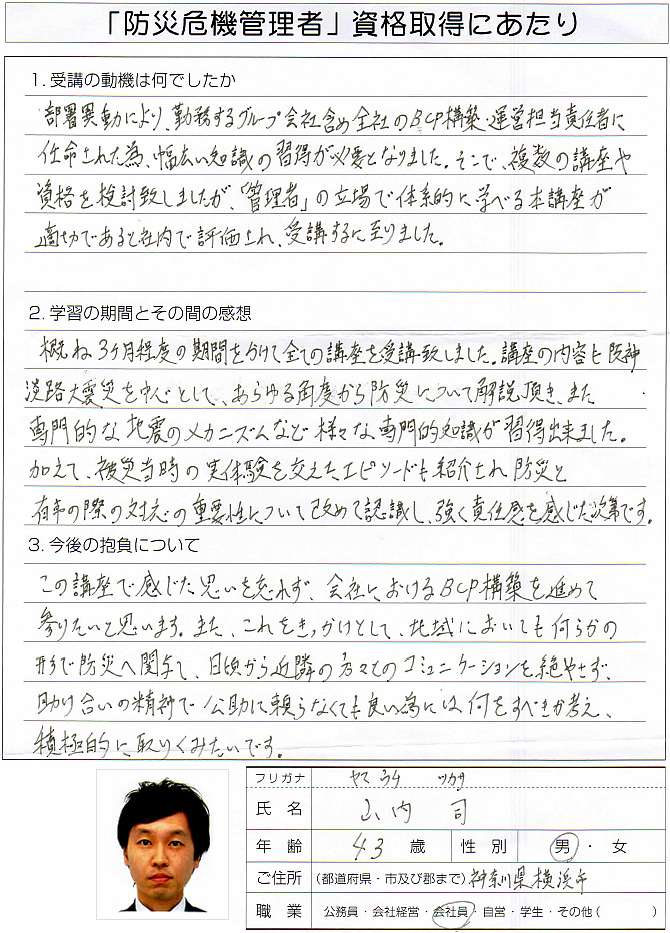 「防災危機管理者」資格取得にあたり
1. 受講の動機は何でしたか
部署異動により、勤務するグループ会社含め全社のBCP構築・運営担当責任者に
任命された為、幅広い知識の習得が必要となりました。そこで、複数の講座や
資格を検討致しましたが、「管理者」の立場で体系的に学べる本講座が
適切であると社内で評価され、受講するに至りました。
2. 学習の期間とその間の感想
概ね3ケ月程度の期間をかけて全ての講座を受講致しました。講座の内容も阪神
淡路大震災を中心として、あらゆる角度から防災について解説頂き、また
専門的な地震のメカニズムなど様々な専門的知識が習得出来ました。
加えて、被災当時の実体験を交えたエピソードも紹介され防災と
有事の際の対応の重要性について改めて認識し、強く責任感を感じた次第です。
3. 今後の抱負について
この講座で感じた思いを忘れず、会社におけるBCP構築を進めて
参りたいと思います。また、これをきっかけとして、地域においても何らかの
形で防災へ関与して、日頃から近隣の方々とのコミュニケーションを絶やさず、
助け合いの精神で公助に頼らなくても良い為には何をすべきか考え、
積極的に取りくみたいです。
フリガナ ヤマウチ ツカサ
氏名 山内 司
年齢 43 歳 性別 男・女
ご住所 (都道府県・市及び郡まで) 神奈川県横浜市
職業 公務員・会社経営・会社員・自営・学生・その他( )